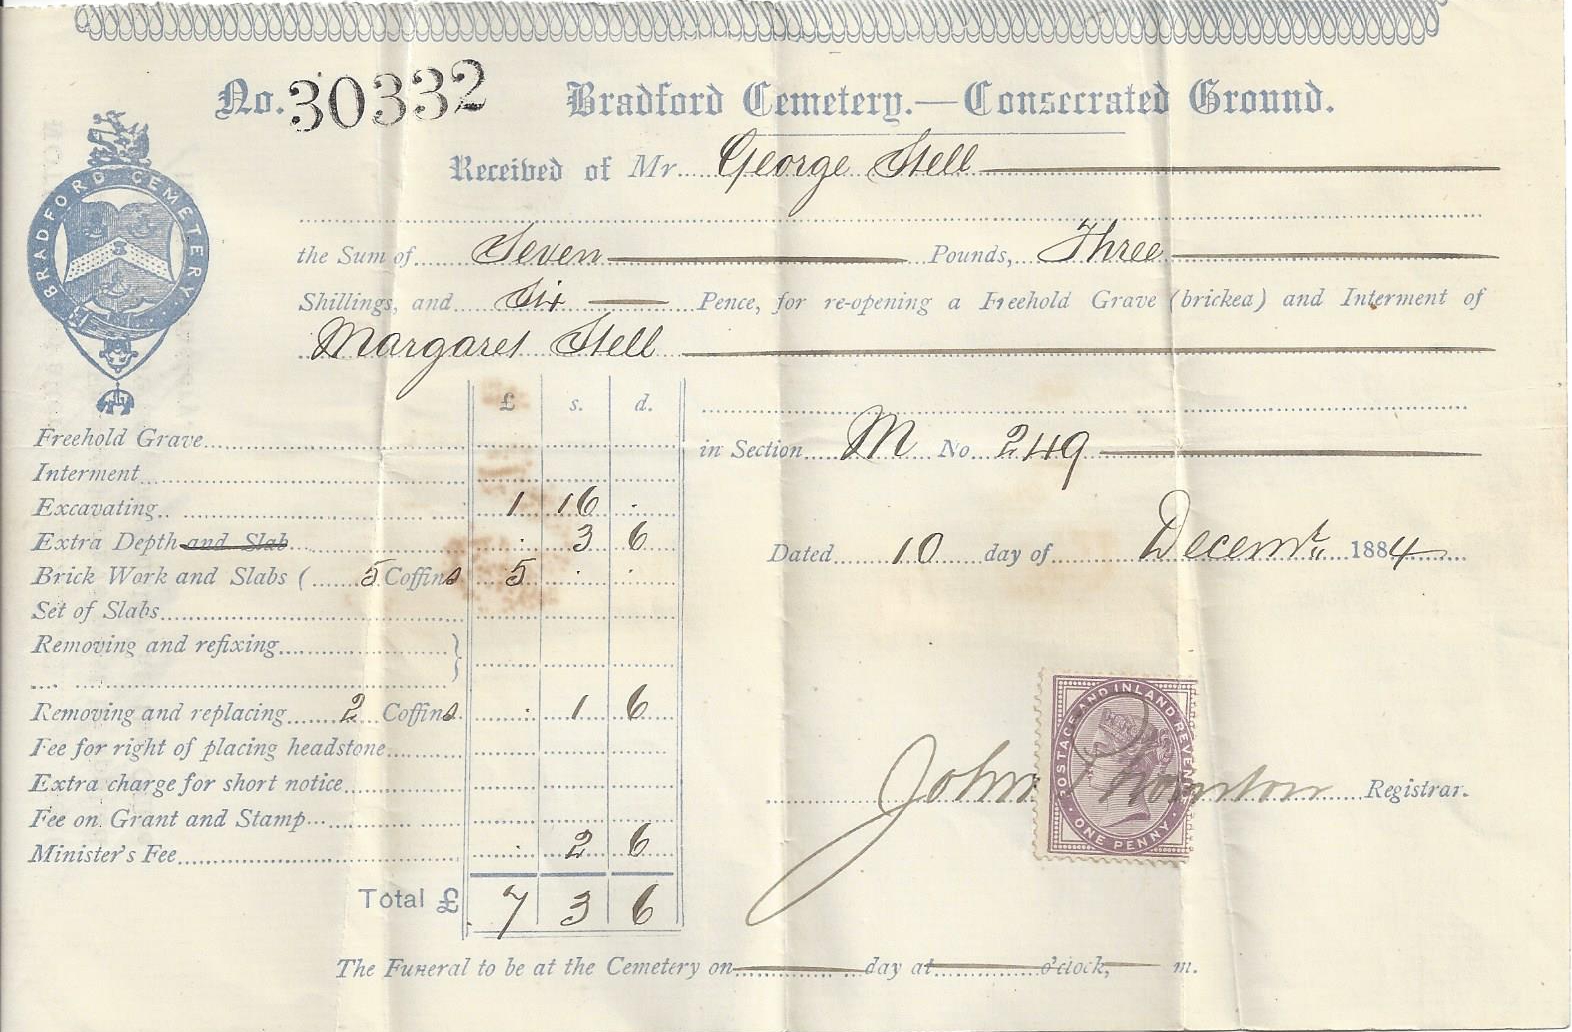 No. 30332 Bradford Cemetery.—Consecrated Ground.
BRADFORD CEMETERY.
Received of Mr George Stell
the Sum of Seven Pounds, Three
Shillings, and Six Pence, for re-opening a Freehold Grave (bricked) and Interment of
Margaret Stell
£ s. d.
Freehold Grave
in Section M No. 249
Interment
Excavating 1 16 .
Extra Depth and Slab . 3 6
Dated 10 day of Decemr. 1884
Brick Work and Slabs ( 5 Coffins 5 . .
Set of Slabs
Removing and refixing }
Removing and replacing 2 Coffins . 1 6
Fee for right of placing headstone
Extra charge for short notice
Fee on Grant and Stamp
Minister's Fee . 2 6
Total £ 7 3 6
POSTAGE AND INLAND REVENUE
ONE PENNY
John Thornton Registrar.
The Funeral to be at the Cemetery on day at o'clock, m.